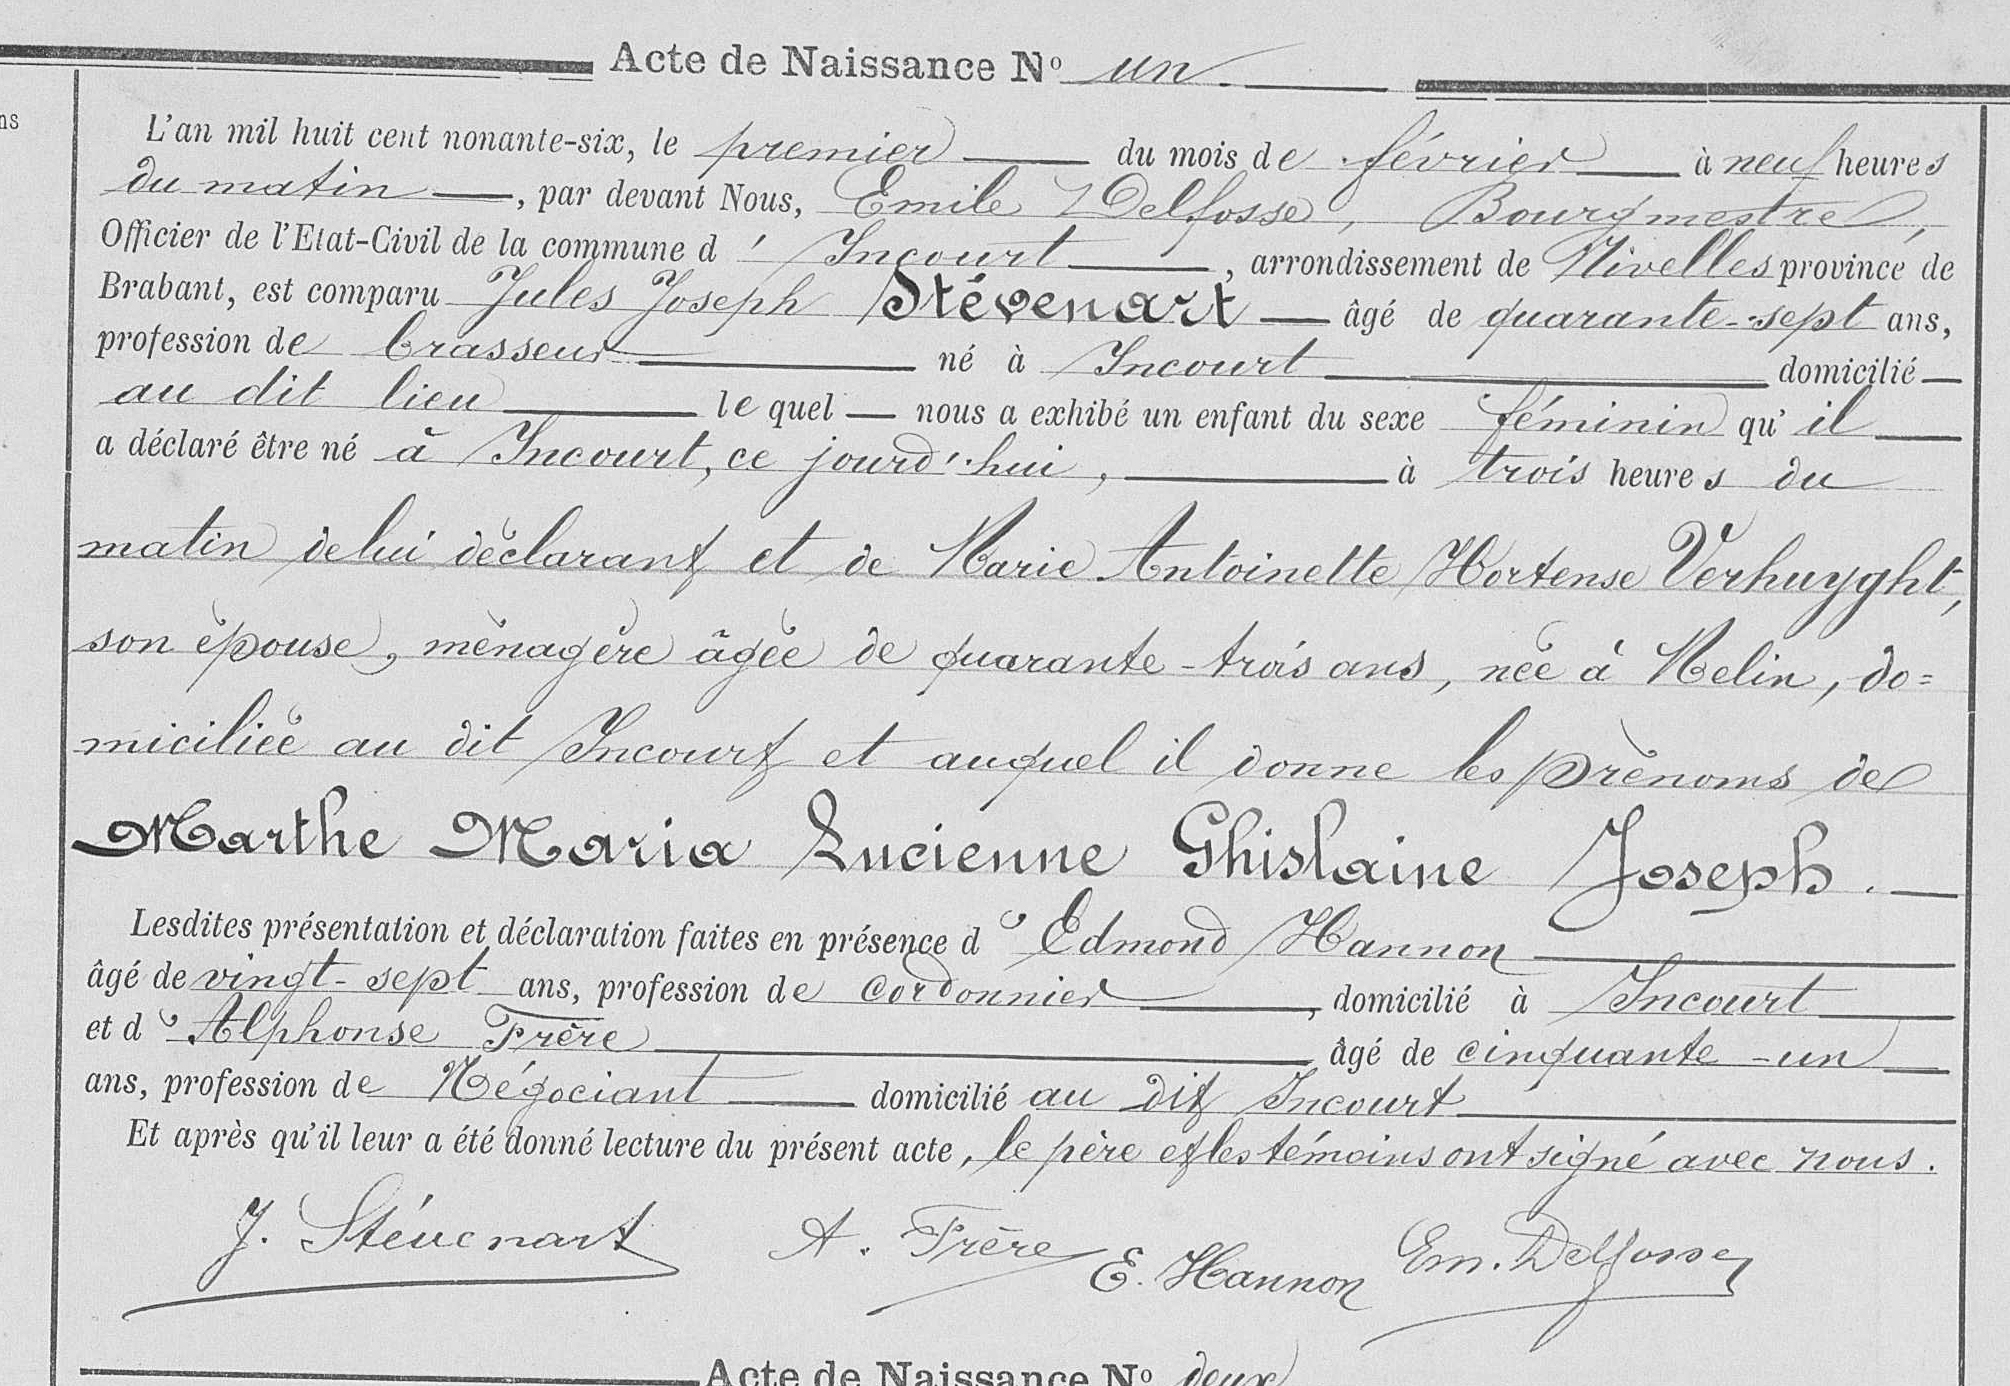 Acte de Naissance Nº un
ns
L'an mil huit cent nonante-six, le premier du mois de février à neuf heures
du matin, par devant Nous, Emile Delfosse, Bourgmestre,
Officier de l'Etat-Civil de la commune d'Incourt, arrondissement de Nivelles province de
Brabant, est comparu Jules Joseph Stévenart âgé de quarante-sept ans,
profession de brasseur né à Incourt domicilié
au dit lieu lequel nous a exhibé un enfant du sexe féminin qu'il
a déclaré être né à Incourt, ce jourd'hui, à trois heures du
matin de lui déclarant et de Marie Antoinette Hortense Verhuyght,
son épouse, ménagère âgée de quarante-trois ans, née à Melin, do=
miciliée au dit Incourt et auquel il donne les prénoms de
Marthe Maria Lucienne Ghislaine Joseph.
Lesdites présentation et déclaration faites en présence de Edmond Hannon
âgé de vingt-sept ans, profession de cordonnier, domicilié à Incourt
et de Alphonse Frère âgé de cinquante-un
ans, profession de Négociant domicilié au dit Incourt
Et après qu'il leur a été donné lecture du présent acte, le père et les témoins ont signé avec nous.
J. Stévenart A. Frère E. Hannon Em. Delfosse
Acte de Naissance Nº deux